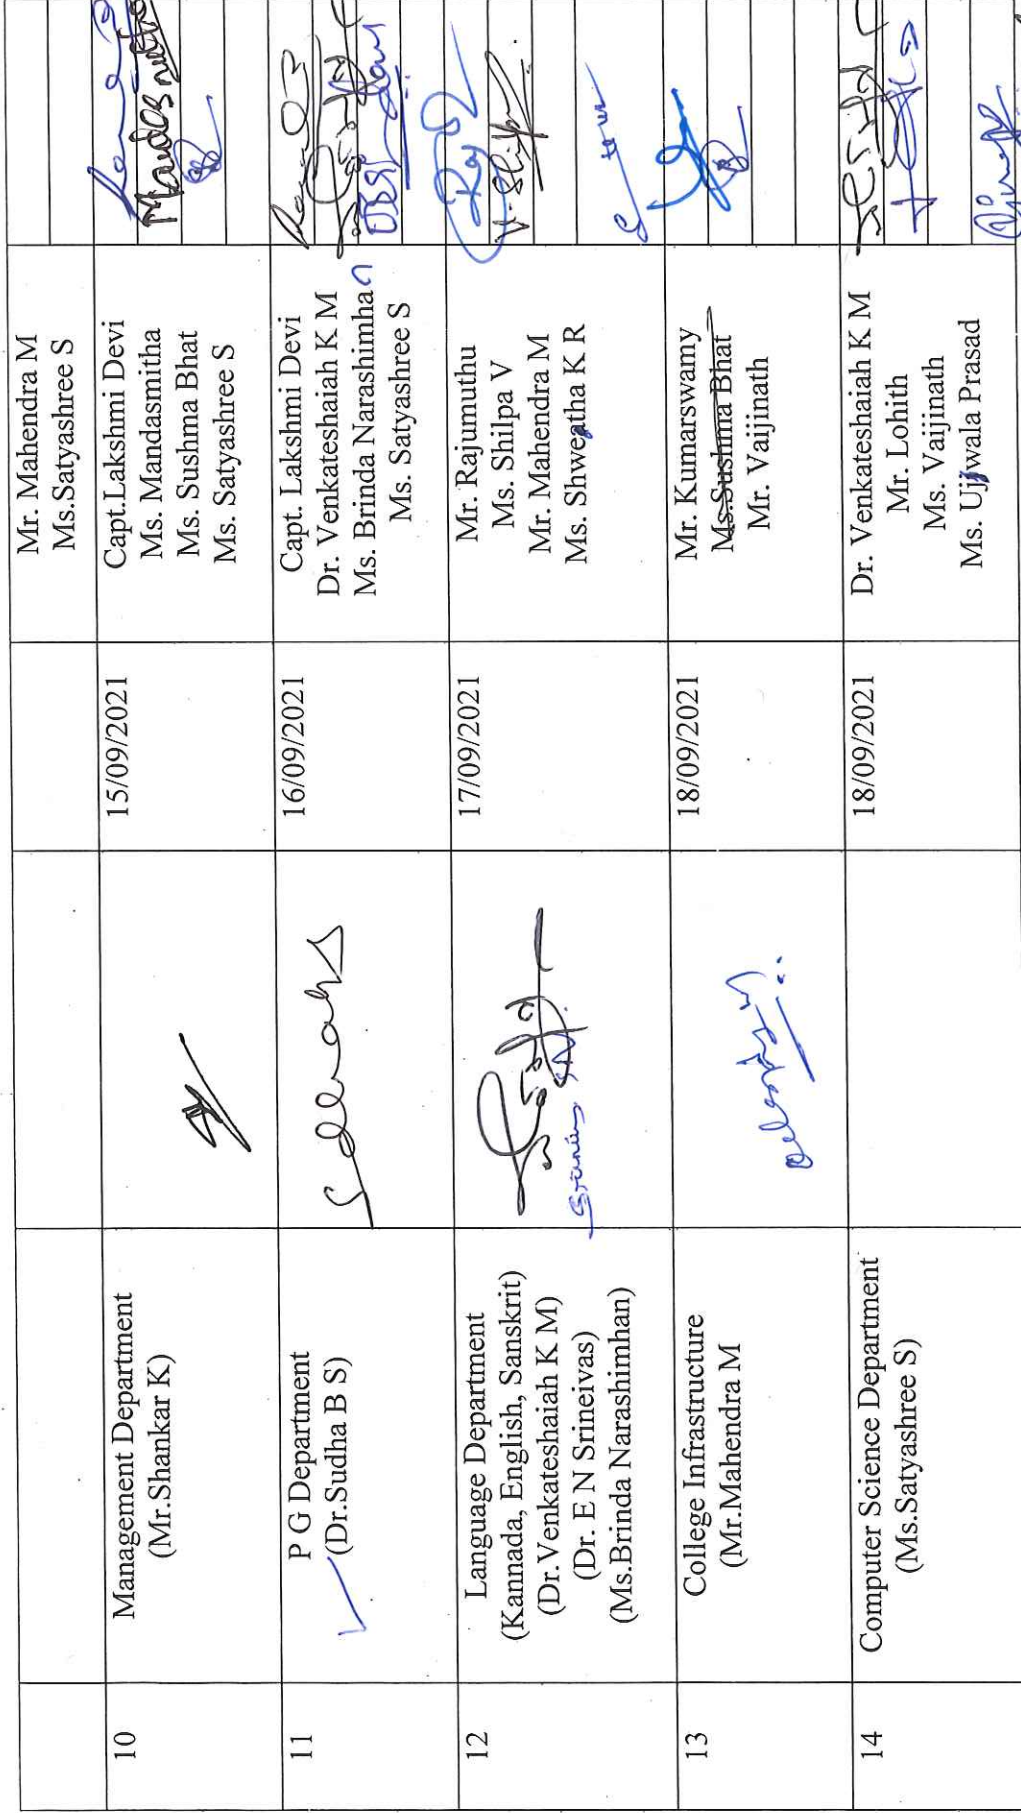 Mr. Mahendra M
Ms.Satyashree S
10
Management Department
(Mr.Shankar K)
15/09/2021
Capt.Lakshmi Devi
Ms. Mandasmitha
Ms. Sushma Bhat
Ms. Satyashree S
Mandasmitha
11
P G Department
(Dr.Sudha B S)
16/09/2021
Capt. Lakshmi Devi
Dr. Venkateshaiah K M
Ms. Brinda Narashimhan
Ms. Satyashree S
12
Language Department
(Kannada, English, Sanskrit)
(Dr.Venkateshaiah K M)
(Dr. E N Srineivas)
(Ms.Brinda Narashimhan)
17/09/2021
Mr. Rajumuthu
Ms. Shilpa V
Mr. Mahendra M
Ms. Shweatha K R
13
College Infrastructure
(Mr.Mahendra M
18/09/2021
Mr. Kumarswamy
Ms.Sushma Bhat
Mr. Vaijinath
14
Computer Science Department
(Ms.Satyashree S)
18/09/2021
Dr. Venkateshaiah K M
Mr. Lohith
Ms. Vaijinath
Ms. Ujjwala Prasad